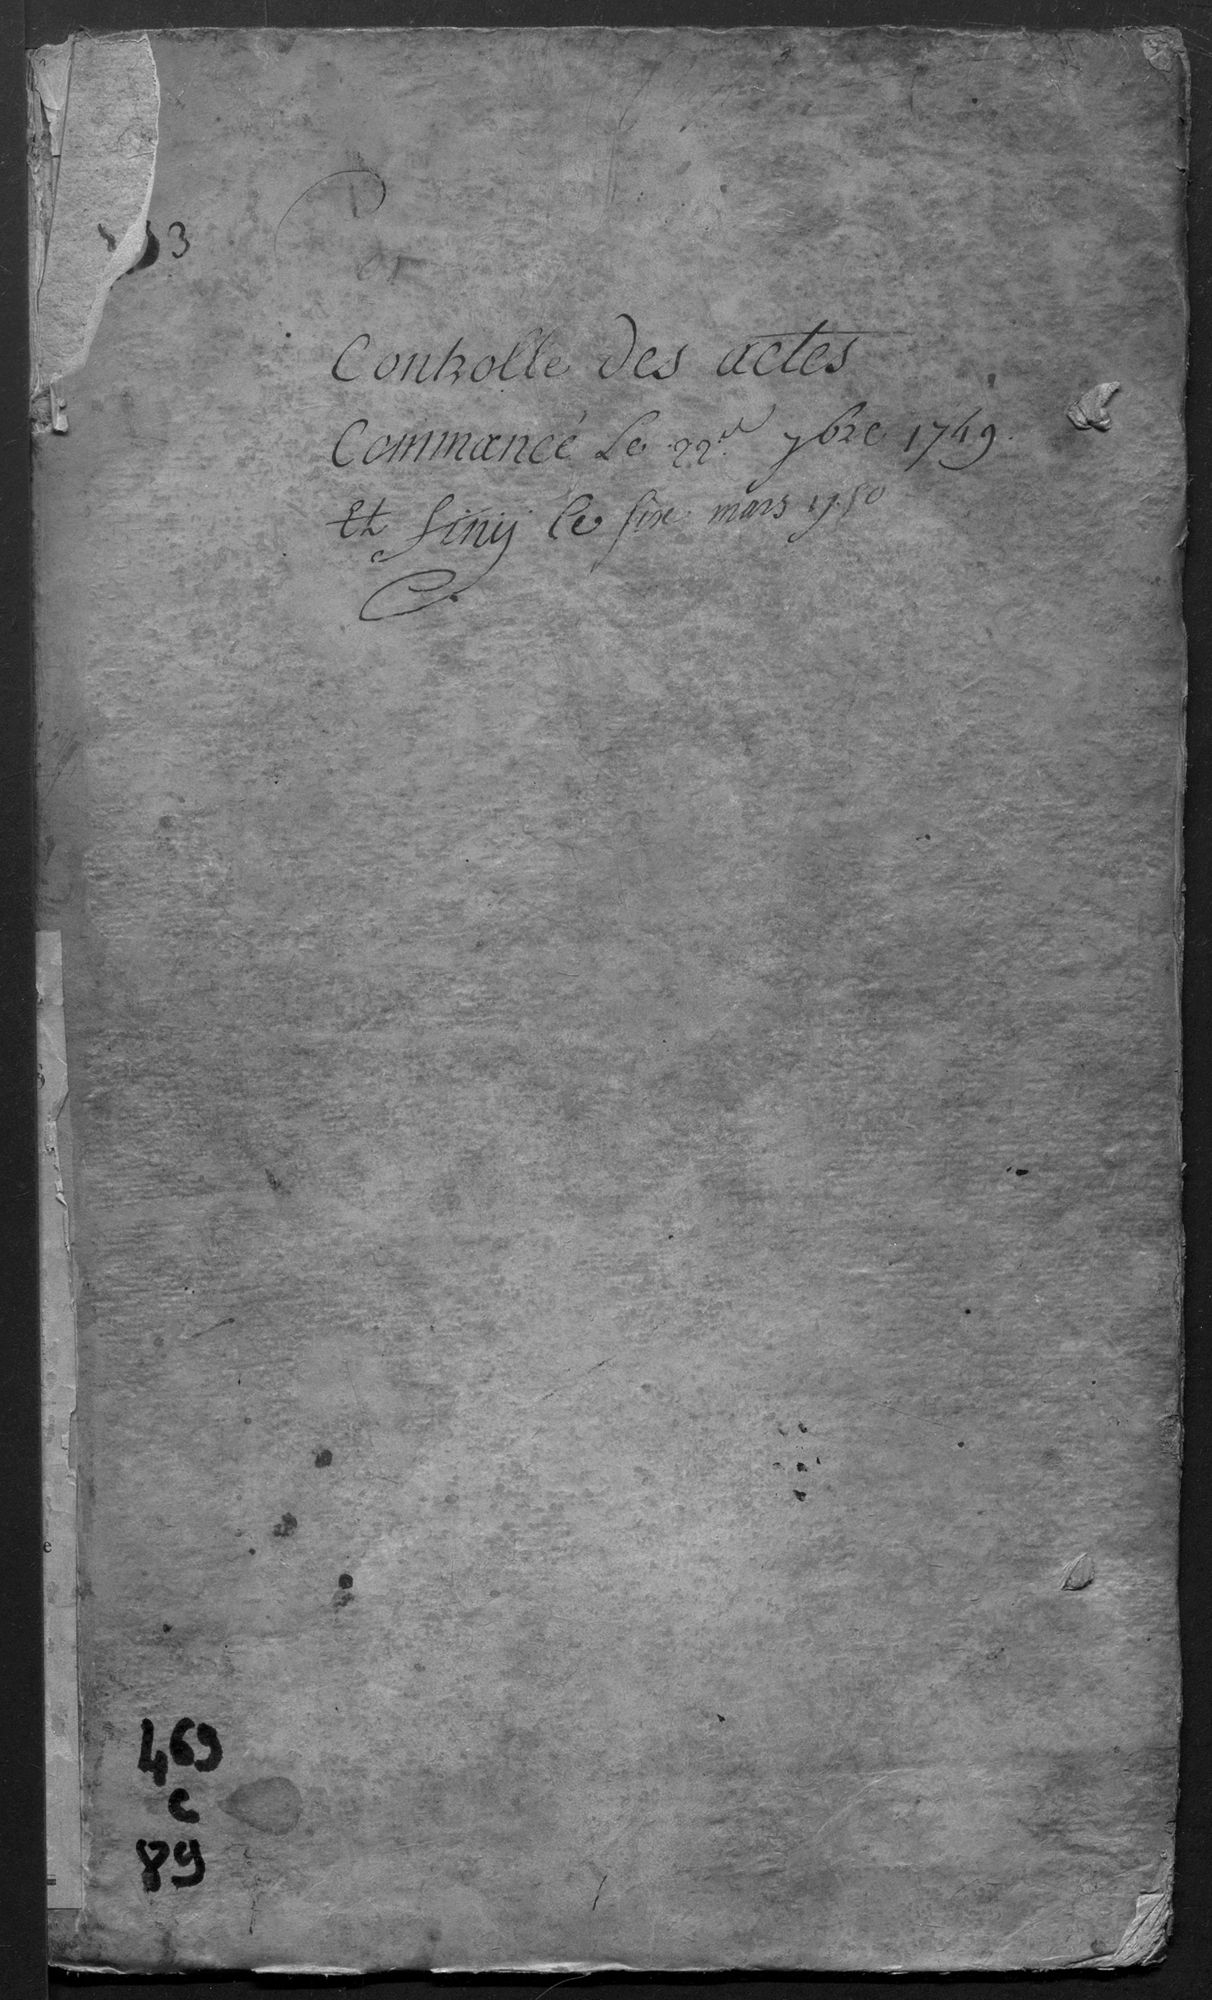 3
Controlle des actes
Commancé Le 22e 7bre 1749
Et finij le six mars 1750
469
C
89